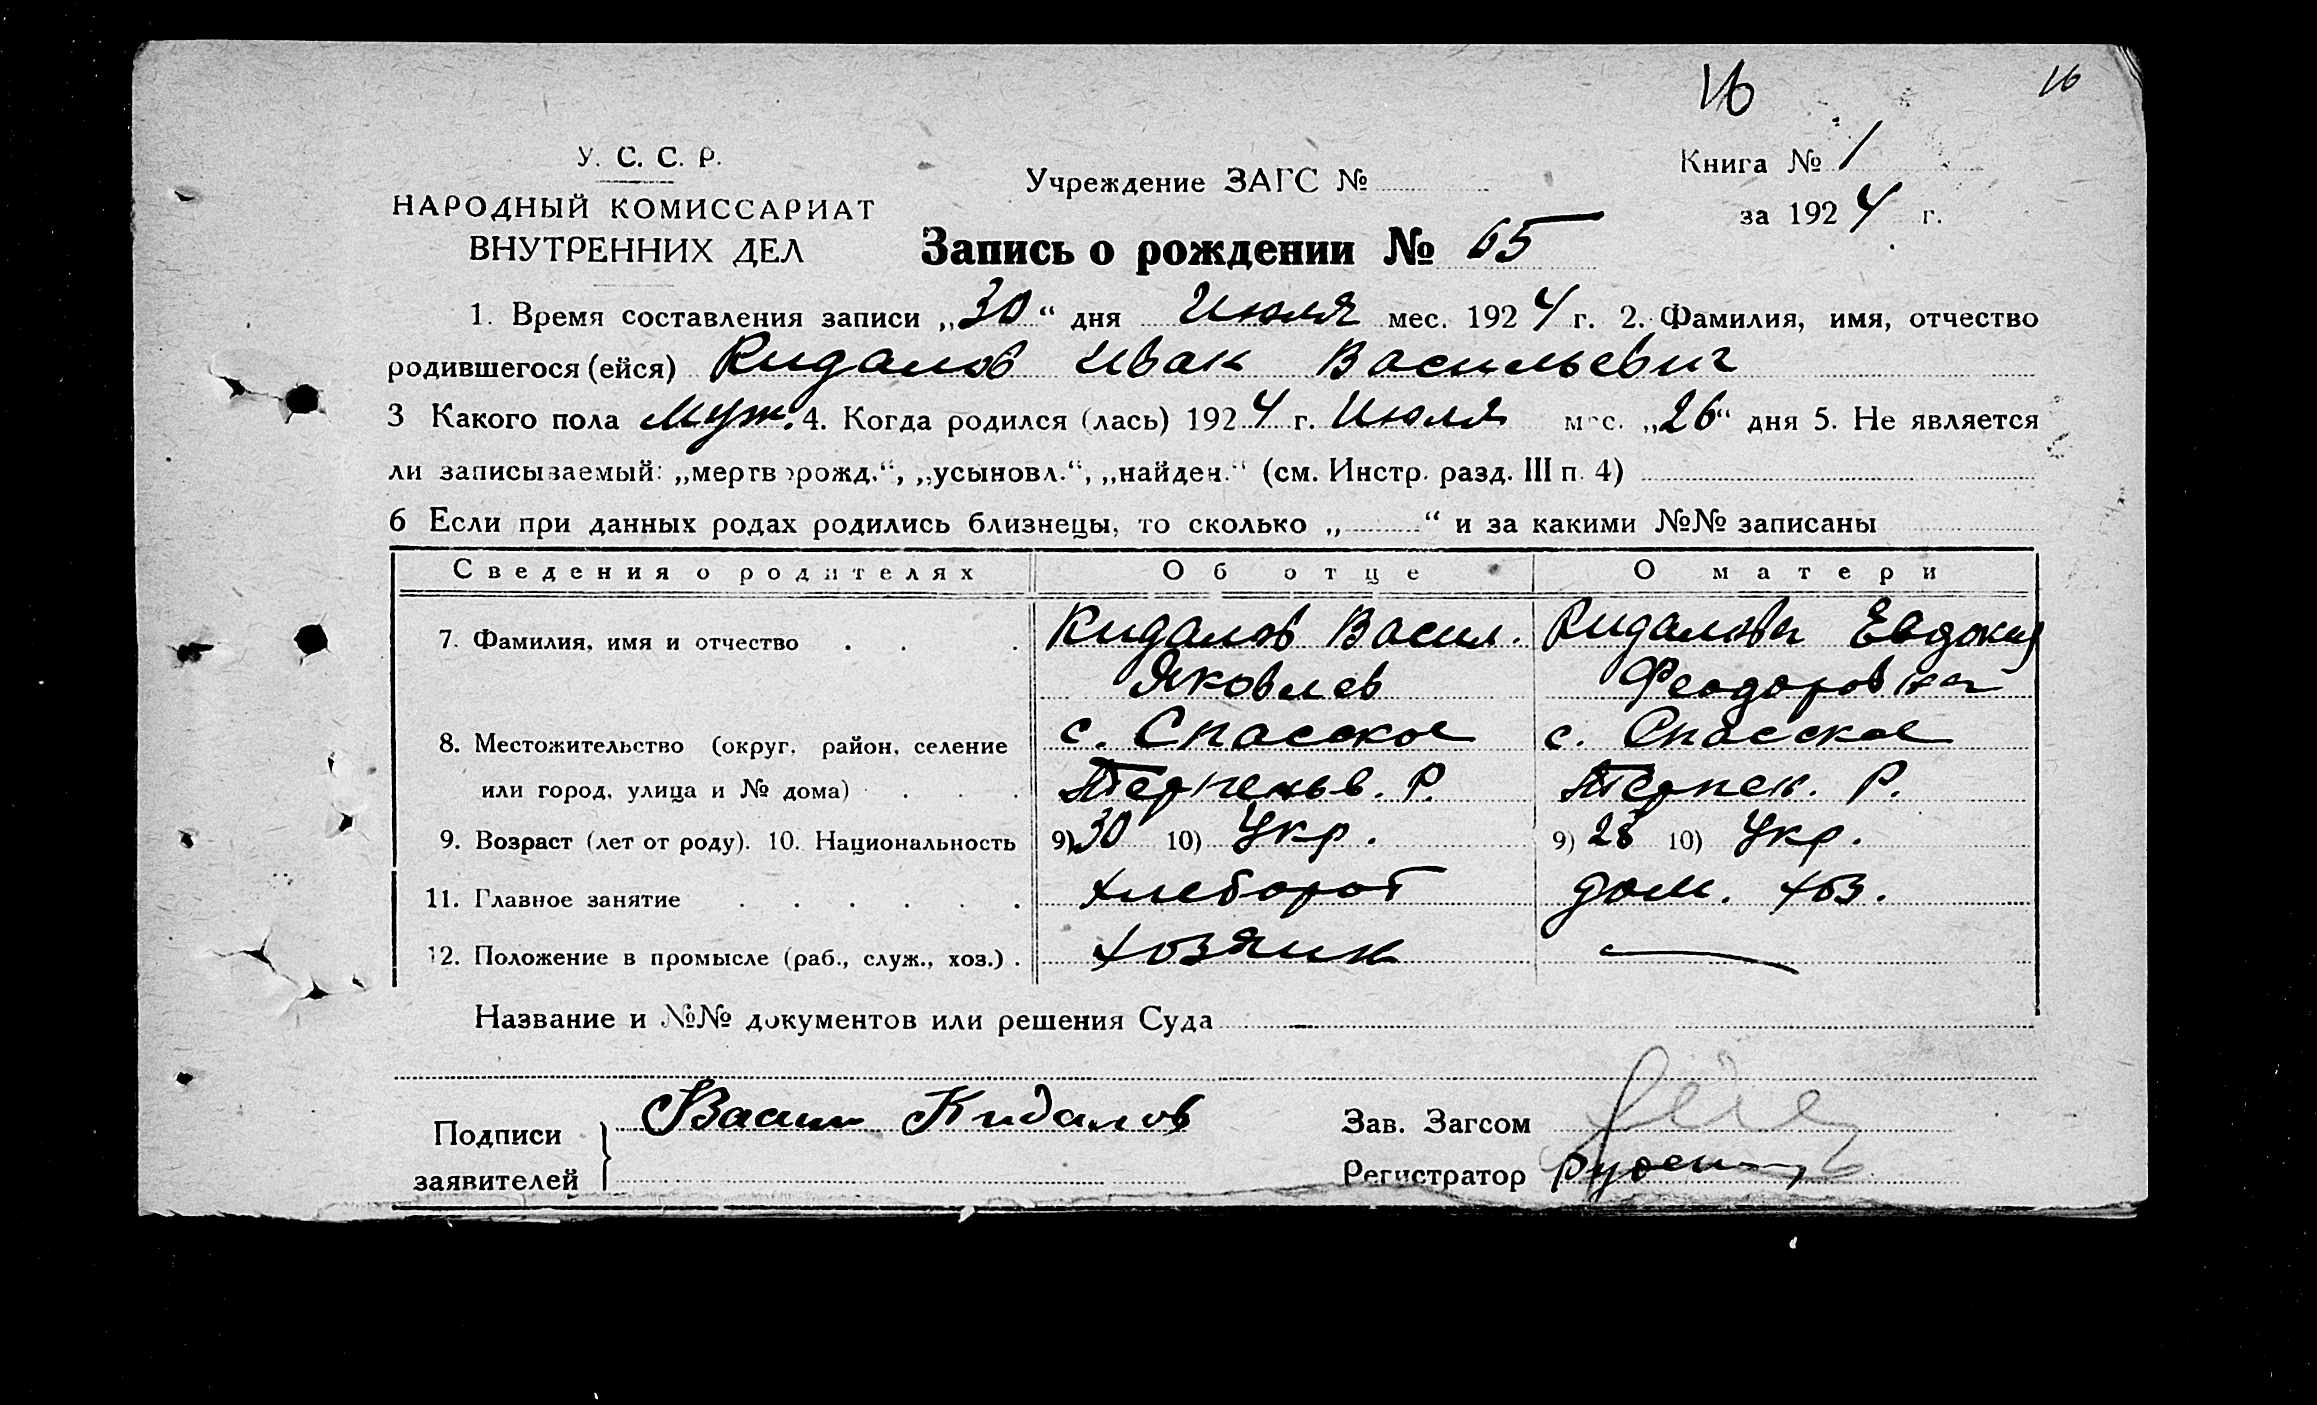 16 16
У. С. С. Р.
Учреждение ЗАГС №
Книга № 1
НАРОДНЫЙ КОМИССАРИАТ
за 1924 г.
ВНУТРЕННИХ ДЕЛ
Запись о рождении № 65
1. Время составления записи „30“ дня Июля мес. 1924 г. 2. Фамилия, имя, отчество
родившегося (ейся) Кидалов Иван Васильевич
3 Какого пола муж. 4. Когда родился (лась) 1924 г. Июля мес. „26“ дня 5. Не является
ли записываемый: „мертворожд.“, „усыновл.“, „найден.“ (см. Инстр. разд. III п. 4)
6 Если при данных родах родились близнецы, то сколько „ “ и за какими №№ записаны
Сведения о родителях Об отце О матери
7. Фамилия, имя и отчество . . . Кидалов Васил. Кидалова Евдокия
Яковлев Феодоровна
8. Местожительство (округ, район, селение с. Спасское с. Спасское
или город, улица и № дома) . . . Терпеньев. Р. Терпен. Р.
9. Возраст (лет от роду). 10. Национальность 9) 30 10) Укр. 9) 28 10) Укр.
11. Главное занятие . . . . . . хлебороб дом. хоз.
12. Положение в промысле (раб., служ., хоз.) . хозяин —
Название и №№ документов или решения Суда —
Подписи заявителей } Васили Кидалов
Зав. Загсом
Регистратор